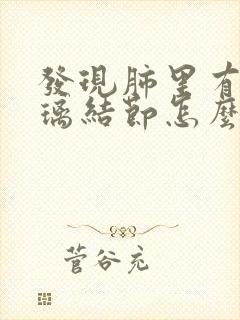 發現肺里有
璃結節怎麼
菅谷充